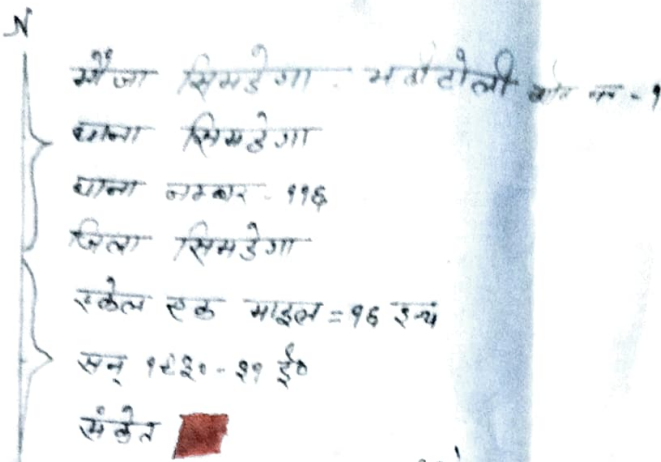 N
मौजा सिमडेगा भट्ठीटोली सीट न० - १
थाना सिमडेगा
थाना नम्बर - ११६
जिला सिमडेगा
स्केल एक माइल = १६ इन्च
सन् १९३० - ३१ ई०
संकेत